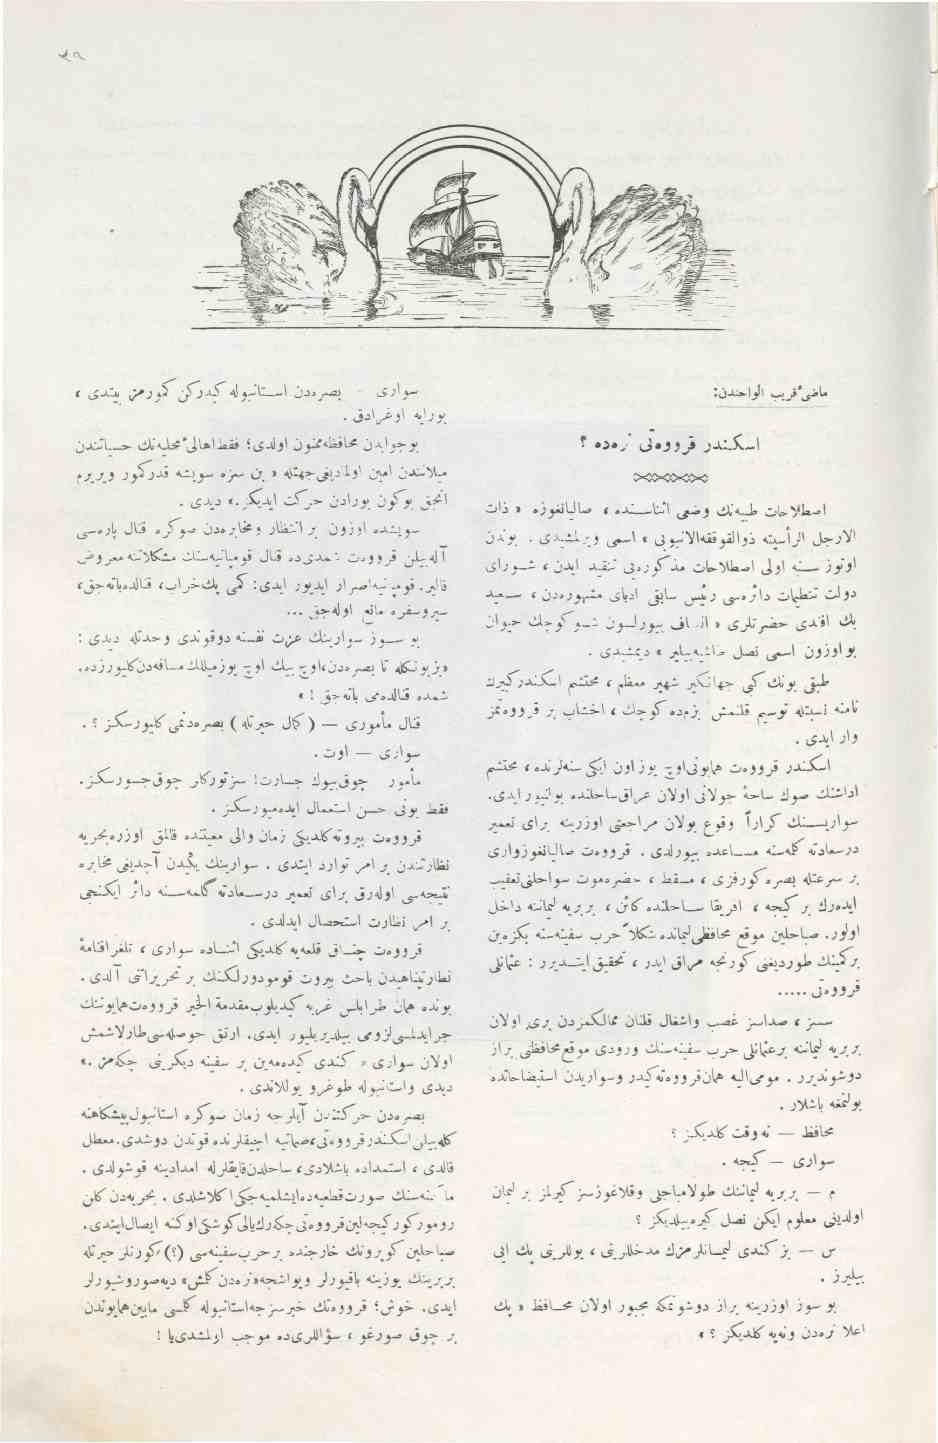 ٣٩
ماضیٔ قریب الواحندن:
اسکندر قرووه‌تی نره‌ده ؟
اصطلاحات طبیه‌نك وضعی اثناسنده ، صالیانغوزه « ذات
الارجل الرأسیته ذوالقوقعةالانبوبی » اسمی ویرلمشیدی . بوندن
اوتوز سنه اولی اصطلاحات مذکوره‌یی تنقید ایدن ، شورای
دولت تنظیمات دائره‌سی رئیس سابقی ادبای مشهوره‌دن ، سعید
بك افندی حضرتلری « انصاف بیورلسون شو کوچك حیوان
بو اوزون اسمی نصل طاشیه‌بیلیر » دیمشیدی .
طبقی بونك کبی جهانکیر شهیر معظم ، محتشم اسکندر کبیرك
نامنه نسبتله توسیم قلنمش بزم‌ده کوچك ، اخشاب بر قرووه‌تمز
وار ایدی .
اسکندر قرووه‌ت همایونی اوچ یوز اون ایکی سنه‌لرنده ، محتشم
آداشنك صوك ساحهٔ جولانی اولان عراق ساحلنده بولنیور ایدی.
سواریسنك کراراً وقوع بولان مراجعتی اوزرینه برای تعمیر
درسعادته کلمه‌سنه مساعده بیورلدی . قرووه‌ت صالیانغوزواری
بر سرعتله بصره کورفزی ، مسقط ، حضرموت سواحلنی تعقیب
ایده‌رك بر کیجه ، افریقا ساحلنده کائن ، بربریه لیماننه داخل
اولور. صباحلین موقع محافظی لیمانده شکلاً حرب سفینه‌سنه بکزه‌ین
برکمینك طوردیغنی کورنجه مراق ایدر ، تحقیق ایتدیرر : عثمانلی
قرووه‌تی .....
سسز ، صداسز غصب واشغال قلنان ممالکمزدن بری اولان
بربریه لیماننه برعثمانلی حرب سفینه‌سنك ورودی موقع محافظنی براز
دوشوندیرر . مومی‌الیه همان قرووه‌ته کیدر وسواریدن استیضاحاتده
بولنمغه باشلار .
محافظ — نه وقت کلدیکز ؟
سواری — کیجه .
م — بربریه لیماننك طولامباجلی وقلاغوزسز کیرلمز بر لیمان
اولدیغی معلوم ایکن نصل کیره‌بیلدیکز ؟
س — بز کندی لیمانلرمزك مدخللرینی ، یوللرینی پك ایی
بیلیرز .
بو سوز اوزرینه براز دوشونمکه مجبور اولان محافظ « پك
اعلا نره‌دن ونه‌یه کلدیکز ؟ »
سواری - بصره‌دن استانبوله کیدرکن کمورمز بیتدی ،
بورایه اوغرادق .
بو جوابدن محافظ ممنون اولدی؛ فقط اهالیٔ محلیه‌نك حسیاتندن
میلانندن امین اولمادیغی جهتله « بن سزه سویشه قدر کمور ویریرم
آنجق بوکون بورادن حرکت ایدیکز.» دیدی .
سویشده اوزون بر انتظار ومخابره‌دن صوکره قنال پاره‌سی
آله‌بیلن قرووه‌ت شمدی‌ده قنال قومپانیه‌سنك مشکلاتنه معروض
قالیر. قومپانیه اصرار ایدیور ایدی: کمی پك خراب، قنالده باته‌جق،
سیروسفره مانع اوله‌جق ...
بو سوز سوارینك عزت نفسنه دوقوندی وحدتله دیدی :
«بز بونکله تا بصره‌دن،اوچ بیك اوچ یوز میللك مسافه‌دن کلیورزده،
شمدی قنالده‌می باته‌جق ! »
قنال مأموری — ( کمال حیرتله ) بصره‌دنمی کلیورسکز ؟ .
سواری — اوت .
مأمور چوق بیوك جسارت! سز تورکلر چوق جسورسکز.
فقط بونی حسن استعمال ایده‌میورسکز .
قرووه‌ت بیروته کلدیکی زمان والی معیتنده قالمق اوزره بحریه
نظارتندن بر امر توارد ایتدی . سوارینك یکیدن آچدیغی مخابره
نتیجه‌سی اوله‌رق برای تعمیر درسعادته کلمه‌سنه دائر ایکنجی
بر امر نظارت استحصال ایدلدی .
قرووه‌ت چناق قلعه‌یه کلدیکی اثناده سواری ، تلغرافنامهٔ
نظارتپناهیدن باحث بیروت قومودورلکنك بر تحریراتنی آلدی .
بونده همان طرابلس غربه کیدیلوب مقدمة الخیر قرووه‌ت همایوننك
جر ایدلمسی لزومی بیلدیریلیور ایدی. آرتق حوصله‌سی طارلاشمش
اولان سواری « کندی کیده‌مه‌ین بر سفینه دیکرینی چکه‌مز .»
دیدی واستانبوله طوغرو یوللاندی .
بصره‌دن حرکتندن آیلرجه زمان صوکره استانبول پیشکاهنه
کله‌بیلن اسکندر قرووه‌تی،صماتیه آچیقلرنده قوتدن دوشدی.معطل
قالدی ، استمداده باشلادی، ساحلدن قایقلرله امدادینه قوشولدی .
ماکنه‌سنك صورت قطعیه‌ده ایشلمیه‌جکی اکلاشلدی . بحریه‌دن کلن
رومورکور کیجه‌لین قرووه‌تی چکه‌رك یالی کوشکی اوکنه ایصال ایتدی.
صباحلین کوپرونك خارجنده بر حرب سفینه‌سی (؟) کورنلر حیرتله
بربرینك یوزینه باقیورلر وبو اشجه «نره‌دن کلمش» دیه صوروشیورلر
ایدی. خوش؛ قرووه‌تك خبرسزجه استانبوله کلمسی مابین همایوندن
بر چوق صورغو ، سؤاللری‌ده موجب اولمشدی یا !